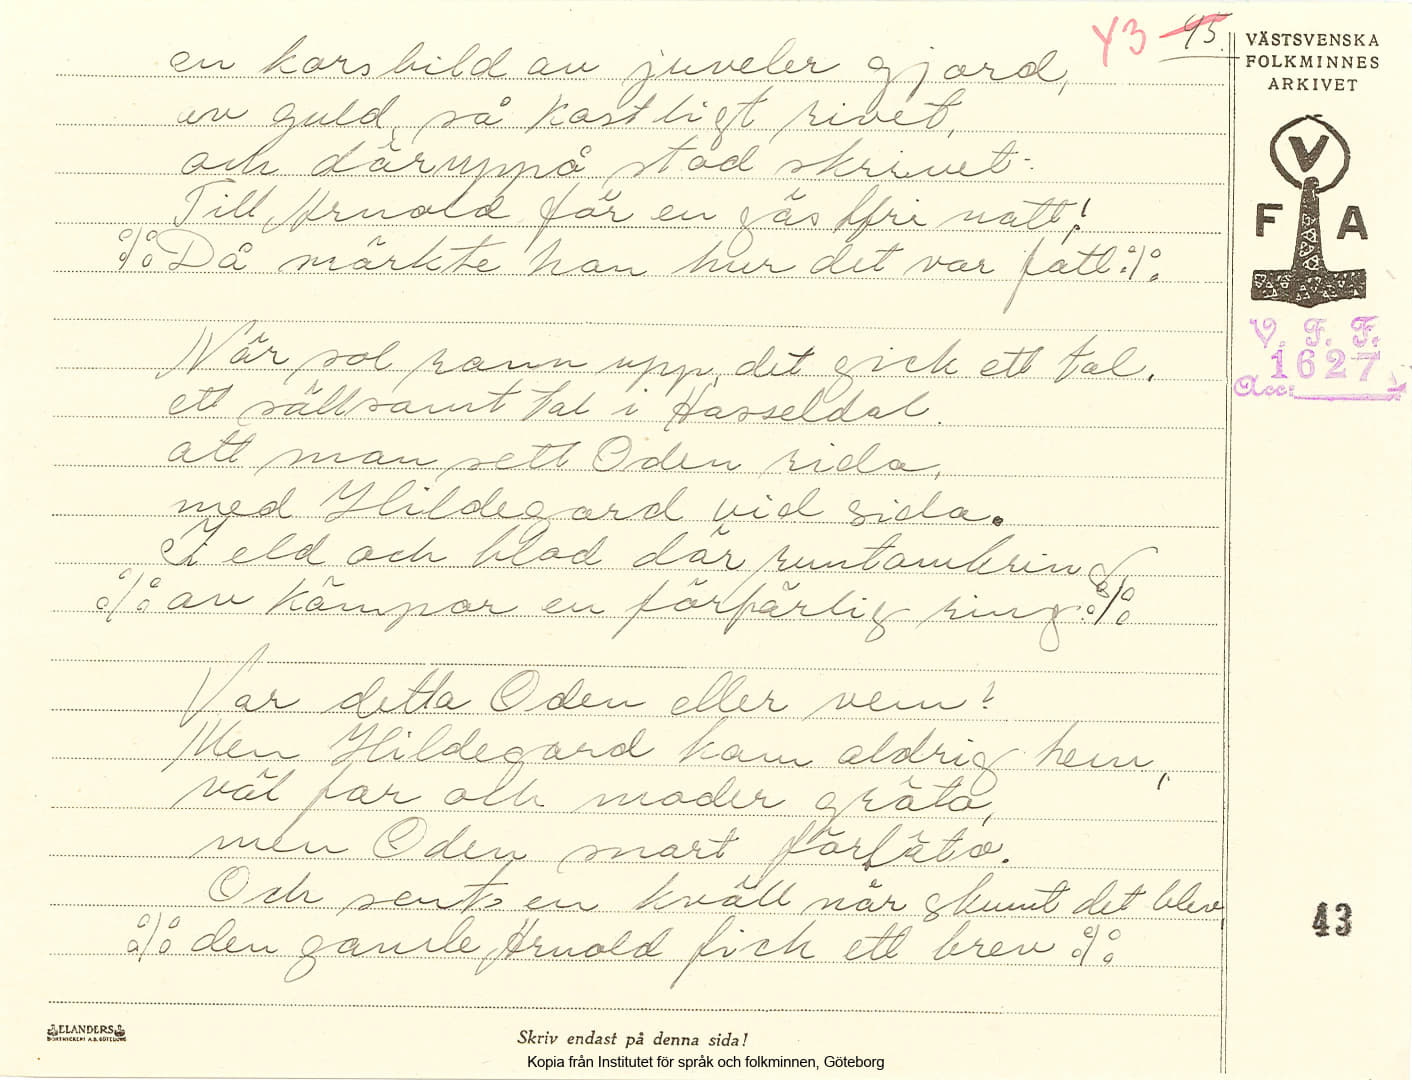 43 45.
VÄSTSVENSKA
FOLKMINNES
ARKIVET
V
F A
V. F. F.
1627
Acc:
en korsbild av juveler gjord,
av guld, så kostligt rivet,
och däruppå stod skrivet:
Till Arnold för en gästfri natt!
%Då märkte han hur det var fatt.%
När sol rann upp, det gick ett tal,
ett sällsamt tal i Hasseldal.
att man sett Oden rida,
med Hildegard vid sida.
I eld och blod där runtomkring
% av kämpar en förfärlig ring.%
Var detta Oden eller vem?
Men Hildegard kom aldrig hem,
väl far och moder gräto,
men Oden snart förläto.
Och sent en kväll när skumt det blev,
% den gamle Arnold fick ett brev %
43
ELANDERS
BOKTRYCKERI A.B. GÖTEBORG
Skriv endast på denna sida!
Kopia från Institutet för språk och folkminnen, Göteborg